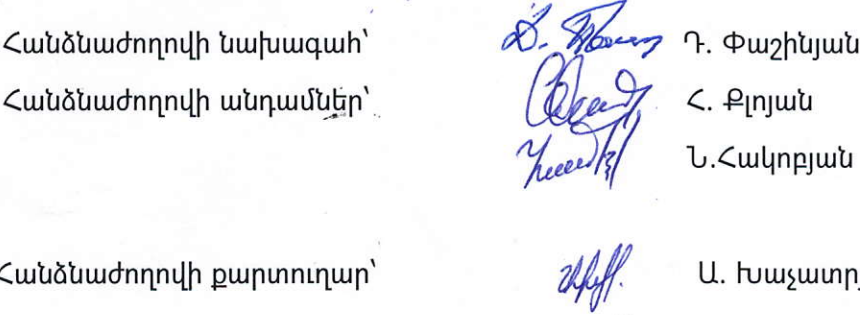 Հանձնաժողովի նախագահ՝ Դ. Փաշինյան
Հանձնաժողովի անդամներ՝ Հ. Քլոյան
Ն.Հակոբյան
Հանձնաժողովի քարտուղար՝ Ա.